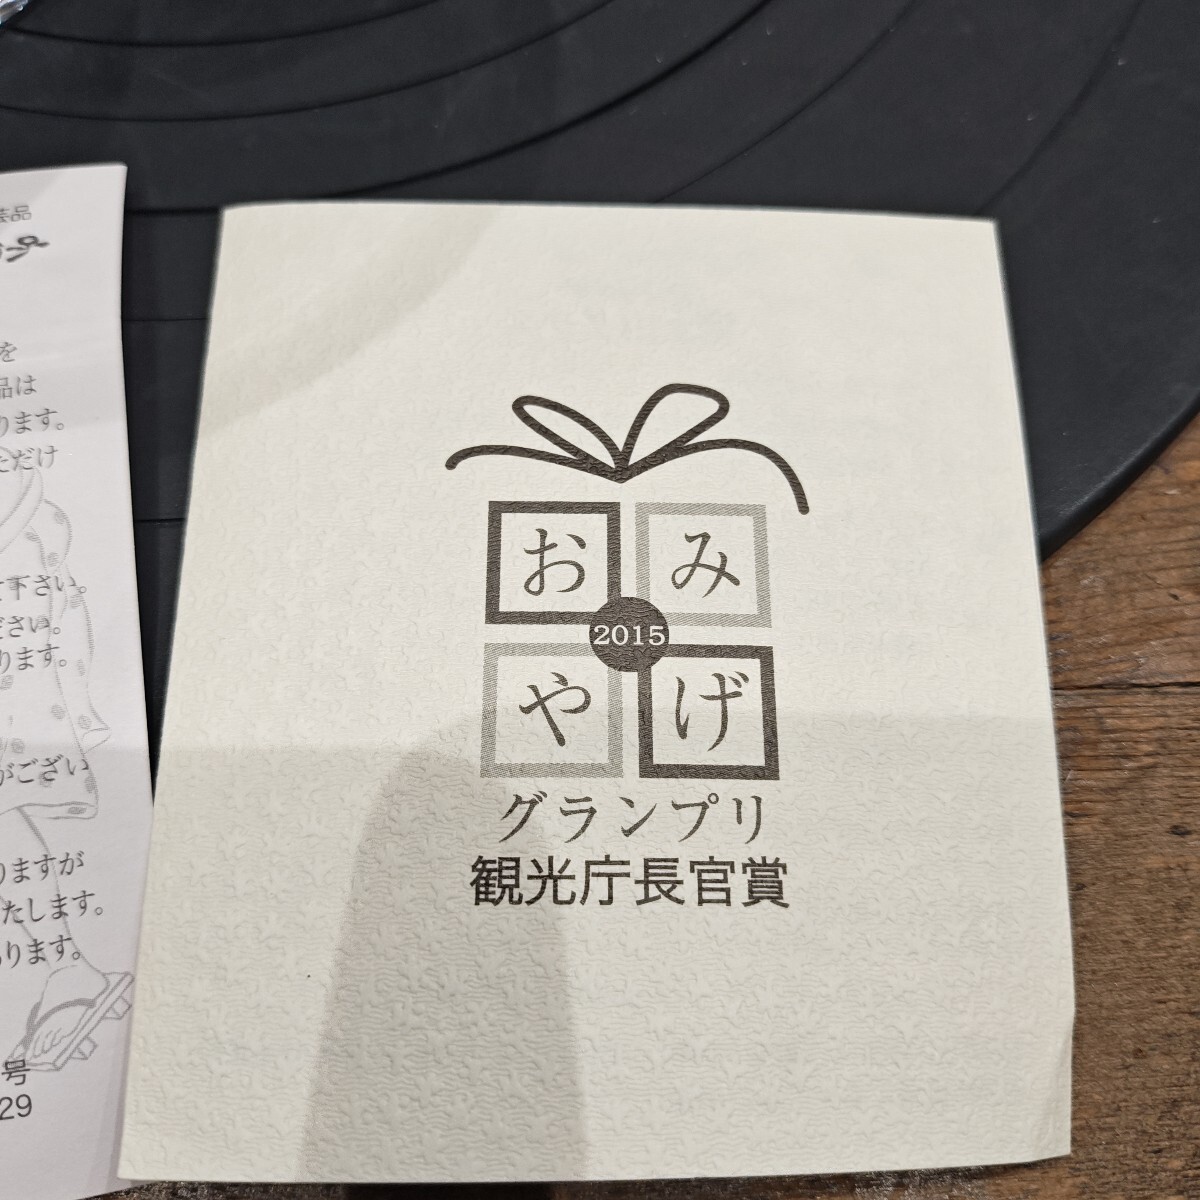 を
品は
ります。
ただけ
下さい。
ださい。
ります。
がござい
りますが
たします。
あります。
号
29
おみ
2015
やげ
グランプリ
観光庁長官賞